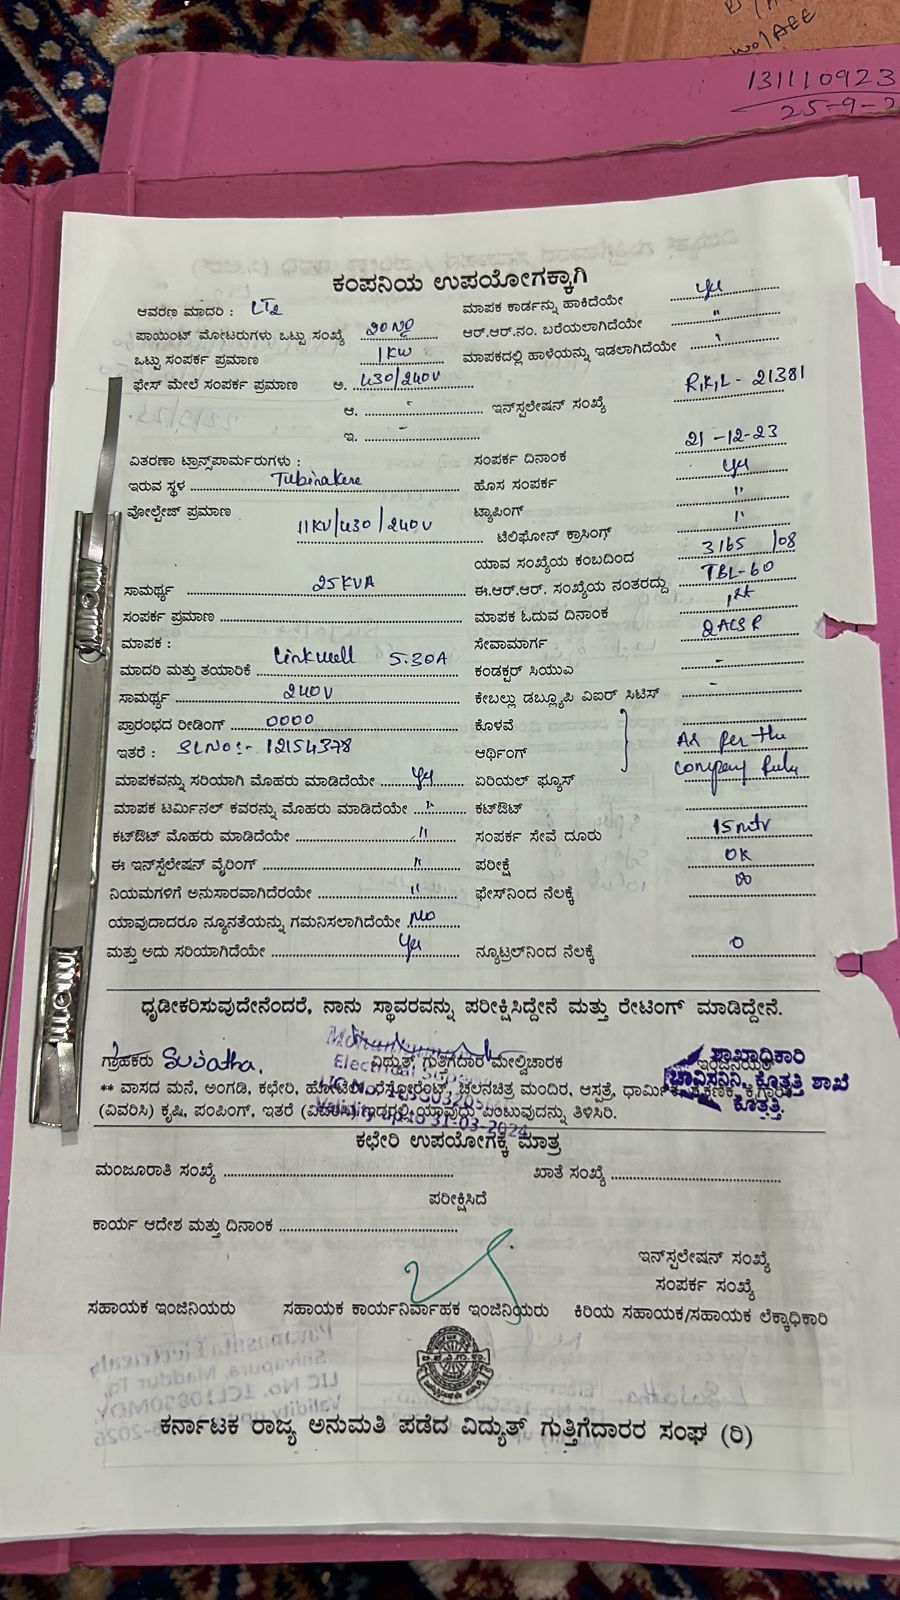 131110923
25-9-2
ಕಂಪನಿಯ ಉಪಯೋಗಕ್ಕಾಗಿ
ಆವರಣ ಮಾದರಿ : LT2 ಮಾಪಕ ಕಾರ್ಡನ್ನು ಹಾಕಿದೆಯೇ yes
ಪಾಯಿಂಟ್ ಮೋಟರುಗಳು ಒಟ್ಟು ಸಂಖ್ಯೆ 20 No ಆರ್.ಆರ್.ನಂ. ಬರೆಯಲಾಗಿದೆಯೇ "
ಒಟ್ಟು ಸಂಪರ್ಕ ಪ್ರಮಾಣ 1KW ಮಾಪಕದಲ್ಲಿ ಹಾಳೆಯನ್ನು ಇಡಲಾಗಿದೆಯೇ "
ಫೇಸ್ ಮೇಲೆ ಸಂಪರ್ಕ ಪ್ರಮಾಣ ಅ. 430/240V
ಆ. - ಇನ್‌ಸ್ಪಲೇಷನ್ ಸಂಖ್ಯೆ R,K,L - 21381
ಇ. -
ವಿತರಣಾ ಟ್ರಾನ್ಸ್‌ಪಾರ್ಮರುಗಳು : ಸಂಪರ್ಕ ದಿನಾಂಕ 21-12-23
ಇರುವ ಸ್ಥಳ Tubinakere ಹೊಸ ಸಂಪರ್ಕ yes
ವೋಲ್ಟೇಜ್ ಪ್ರಮಾಣ 11KV/430/240V ಟ್ಯಾಪಿಂಗ್ "
ಟೆಲಿಫೋನ್ ಕ್ರಾಸಿಂಗ್ "
ಯಾವ ಸಂಖ್ಯೆಯ ಕಂಬದಿಂದ 3165 /08
ಸಾಮರ್ಥ್ಯ 25KVA ಈ.ಆರ್.ಆರ್. ಸಂಖ್ಯೆಯ ನಂತರದ್ದು TBL-60
ಸಂಪರ್ಕ ಪ್ರಮಾಣ ಮಾಪಕ ಓದುವ ದಿನಾಂಕ 1st
ಮಾಪಕ : ಸೇವಾಮಾರ್ಗ 2ACSR
ಮಾದರಿ ಮತ್ತು ತಯಾರಿಕೆ Linkwell 5.30A ಕಂಡಕ್ಟರ್ ಸಿಯುಎ -
ಸಾಮರ್ಥ್ಯ 240V ಕೇಬಲ್ಲು ಡಬ್ಲ್ಯೂಪಿ ವಿಐಆರ್ ಸಿಟಿಸ್ -
ಪ್ರಾರಂಭದ ರೀಡಿಂಗ್ 0000 ಕೊಳವೆ
ಇತರೆ : SLNo:- 12154378 ಆರ್ಥಿಂಗ್ As per the
ಮಾಪಕವನ್ನು ಸರಿಯಾಗಿ ಮೊಹರು ಮಾಡಿದೆಯೇ yes ಏರಿಯಲ್ ಫ್ಯೂಸ್ company Rule
ಮಾಪಕ ಟರ್ಮಿನಲ್ ಕವರನ್ನು ಮೊಹರು ಮಾಡಿದೆಯೇ " ಕಟ್‌ಔಟ್
ಕಟ್‌ಔಟ್ ಮೊಹರು ಮಾಡಿದೆಯೇ " ಸಂಪರ್ಕ ಸೇವೆ ದೂರು 15mtr
ಈ ಇನ್‌ಸ್ಟಲೇಷನ್ ವೈರಿಂಗ್ " ಪರೀಕ್ಷೆ OK
ನಿಯಮಗಳಿಗೆ ಅನುಸಾರವಾಗಿದೆರಯೇ " ಫೇಸ್‌ನಿಂದ ನೆಲಕ್ಕೆ ∞
ಯಾವುದಾದರೂ ನ್ಯೂನತೆಯನ್ನು ಗಮನಿಸಲಾಗಿದೆಯೇ NO
ಮತ್ತು ಅದು ಸರಿಯಾಗಿದೆಯೇ yes ನ್ಯೂಟ್ರಲ್‌ನಿಂದ ನೆಲಕ್ಕೆ 0
ಧೃಡೀಕರಿಸುವುದೇನೆಂದರೆ, ನಾನು ಸ್ಥಾವರವನ್ನು ಪರೀಕ್ಷಿಸಿದ್ದೇನೆ ಮತ್ತು ರೇಟಿಂಗ್ ಮಾಡಿದ್ದೇನೆ.
ಗ್ರಾಹಕರು Sujatha. ವಿದ್ಯುತ್ ಗುತ್ತಿಗೆದಾರ ಮೇಲ್ವಿಚಾರಕ ಇಂಜಿನಿಯರ್
ಶಾಖಾಧಿಕಾರಿ
ಚಾವಿಸನಿನಿ, ಕೊತ್ತತ್ತಿ ಶಾಖೆ
ಕೊತ್ತತ್ತಿ.
** ವಾಸದ ಮನೆ, ಅಂಗಡಿ, ಕಛೇರಿ, ಹೋಟೆಲ್, ರೆಸ್ಟೋರೆಂಟ್, ಚಲನಚಿತ್ರ ಮಂದಿರ, ಆಸ್ಪತ್ರೆ,
(ವಿವರಿಸಿ) ಕೃಷಿ, ಪಂಪಿಂಗ್, ಇತರೆ ಯಾವುದು ಎಂಬುವುದನ್ನು ತಿಳಿಸಿರಿ.
31-03-2024
ಕಛೇರಿ ಉಪಯೋಗಕ್ಕೆ ಮಾತ್ರ
ಮಂಜೂರಾತಿ ಸಂಖ್ಯೆ ಖಾತೆ ಸಂಖ್ಯೆ
ಪರೀಕ್ಷಿಸಿದೆ
ಕಾರ್ಯ ಆದೇಶ ಮತ್ತು ದಿನಾಂಕ
ಇನ್‌ಸ್ಪಲೇಷನ್ ಸಂಖ್ಯೆ
ಸಂಪರ್ಕ ಸಂಖ್ಯೆ
ಸಹಾಯಕ ಇಂಜಿನಿಯರು ಸಹಾಯಕ ಕಾರ್ಯನಿರ್ವಾಹಕ ಇಂಜಿನಿಯರು ಕಿರಿಯ ಸಹಾಯಕ/ಸಹಾಯಕ ಲೆಕ್ಕಾಧಿಕಾರಿ
ಕರ್ನಾಟಕ ರಾಜ್ಯ ಅನುಮತಿ ಪಡೆದ ವಿದ್ಯುತ್ ಗುತ್ತಿಗೆದಾರರ ಸಂಘ (ರಿ)